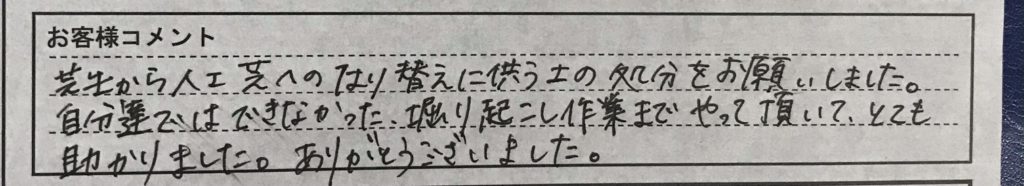 お客様コメント
芝生から人工芝へのはり替えに供う土の処分をお願いしました。
自分達ではできなかった、堀り起こし作業までやって頂いて、とても
助かりました。ありがとうございました。